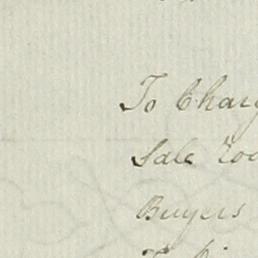 To Charg
Sale Roo
Buyers